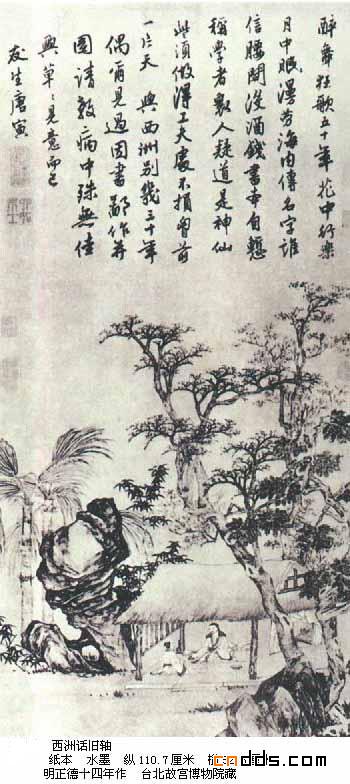 醉舞狂歌五十年花中行樂
月中眠漫勞海内傳名字誰
信腰間没酒錢書本自慙
稱學者衆人疑道是神仙
些須做得工夫處不損胷前
一片天 與西洲別幾三十年
偶爾見過因書鄙作并
圖請教病中殊無佳
興草〻見意而已
友生唐寅
西洲话旧轴
纸本 水墨 纵110.7厘米
明正德十四年作 台北故宫博物院藏